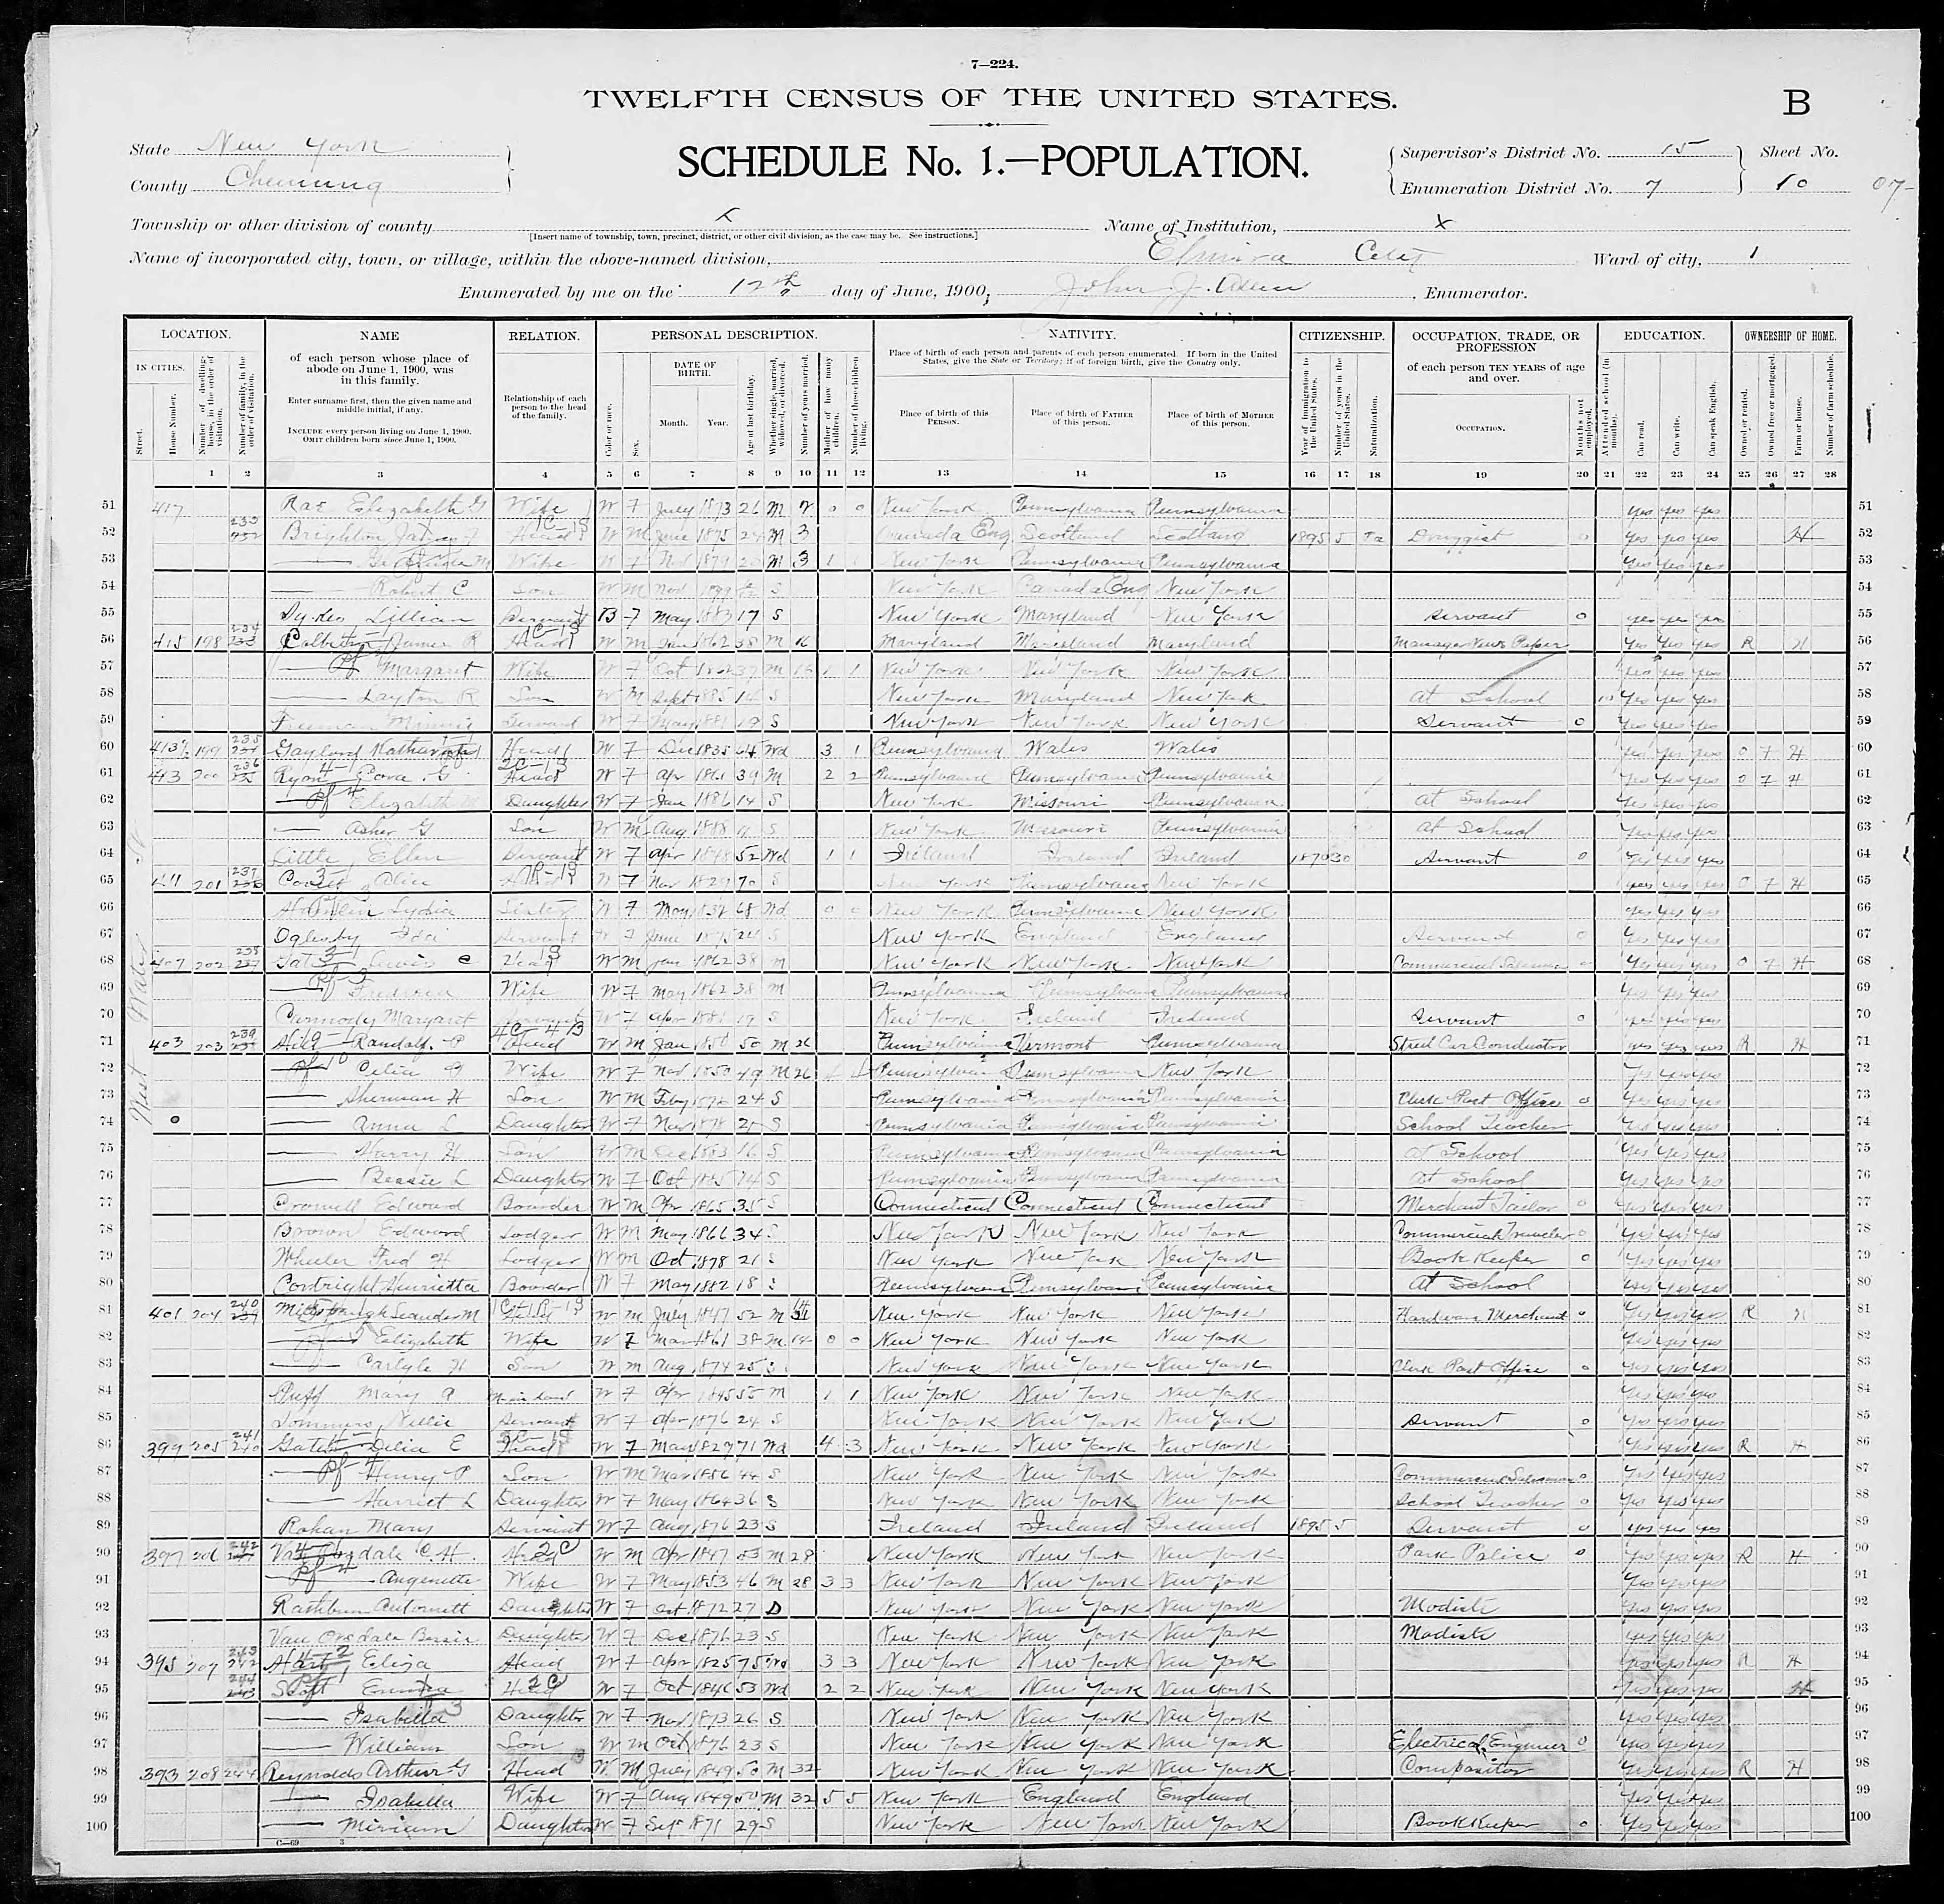 7—224.
TWELFTH CENSUS OF THE UNITED STATES.
B
State New York
SCHEDULE No. 1.—POPULATION.
Supervisor's District No. 15 Sheet No.
County Chemung
Enumeration District No. 7 10
07-
Township or other division of county x Name of Institution, x
[Insert name of township, town, precinct, district, or other civil division, as the case may be. See instructions.]
Name of incorporated city, town, or village, within the above-named division, Elmira City Ward of city, 1
Enumerated by me on the 12th day of June, 1900, John J. Allen, Enumerator.
LOCATION. NAME RELATION. PERSONAL DESCRIPTION. NATIVITY. CITIZENSHIP. OCCUPATION, TRADE, OR PROFESSION EDUCATION. OWNERSHIP OF HOME.
IN CITIES. Street. House Number. Number of dwelling house, in the order of visitation. Number of family, in the order of visitation.
of each person whose place of abode on June 1, 1900, was in this family.
Enter surname first, then the given name and middle initial, if any.
INCLUDE every person living on June 1, 1900. OMIT children born since June 1, 1900.
Relationship of each person to the head of the family.
Color or race. Sex. DATE OF BIRTH. Month. Year. Age at last birthday. Whether single, married, widowed, or divorced. Number of years married. Mother of how many children. Number of these children living.
Place of birth of each person and parents of each person enumerated. If born in the United States, give the State or Territory; if of foreign birth, give the Country only.
Place of birth of this PERSON. Place of birth of FATHER of this person. Place of birth of MOTHER of this person.
Year of immigration to the United States. Number of years in the United States. Naturalization.
of each person TEN YEARS of age and over.
OCCUPATION. Months not employed.
Attended school (in months). Can read. Can write. Can speak English.
Owned or rented. Owned free or mortgaged. Farm or house. Number of farm schedule.
1 2 3 4 5 6 7 8 9 10 11 12 13 14 15 16 17 18 19 20 21 22 23 24 25 26 27 28
West Water St
51 417 Rae Elizabeth G Wife W F July 1873 26 M 2 0 0 New York Pennsylvania Pennsylvania yes yes yes 51
52 Brighton James Head W M June 1875 24 M 3 Canada Eng Scotland Scotland 1895 5 Pa Druggist 0 yes yes yes H 52
53 Wife W F Nov 1879 20 M 3 1 New York Pennsylvania Pennsylvania yes yes yes 53
54 — Robert C Son W M Nov S New York Canada Eng New York 54
55 Lillian Servant B F May 1883 17 S New York Maryland New York Servant 0 yes yes yes 55
56 415 198 James R Head W M Jan 1862 38 M 16 Maryland Maryland Maryland Manager News Paper yes yes yes R H 56
57 — Margaret Wife W F Oct 1862 37 M 16 1 1 New York New York New York yes yes yes 57
58 — Layton R Son W M Sept 1885 14 S New York Maryland New York At School 10 yes yes yes 58
59 Freeman Minnie Servant W F May 1881 19 S New York New York New York Servant 0 yes yes yes 59
60 413½ 199 Gaylord Head W F Dec 1835 64 Wd 3 1 Pennsylvania Wales Wales yes yes yes O F H 60
61 413 200 Ryon Cora G Head W F Apr 1861 39 M 2 2 Pennsylvania Pennsylvania Pennsylvania yes yes yes O F H 61
62 — Elizabeth Daughter W F Jan 1886 14 S New York Missouri Pennsylvania At School yes yes yes 62
63 — Asher G Son W M Aug 1888 11 S New York Missouri Pennsylvania At School yes yes yes 63
64 Little Ellen Servant W F Apr 1848 52 Wd 1 1 Ireland Ireland Ireland 1870 30 Servant 0 yes yes yes 64
65 201 Alice Head W F Nov 1829 70 S New York Pennsylvania New York yes yes yes O F H 65
66 Lydia Sister W F May 1832 68 Wd 0 0 New York Pennsylvania New York yes yes yes 66
67 Oglesby Ida Servant W F June 1875 24 S New York England England Servant 0 yes yes yes 67
68 407 202 Lewis C Head W M Jan 1862 38 M New York New York New York Commercial Salesman yes yes yes O F H 68
69 — Fredrica Wife W F May 1862 38 M Pennsylvania Pennsylvania Pennsylvania yes yes yes 69
70 Carmody Margaret Servant W F Apr 1881 19 S New York Ireland Ireland Servant 0 yes yes yes 70
71 403 203 Randolf P Head W M Jan 1850 50 M 26 Pennsylvania Vermont Pennsylvania Street Car Conductor yes yes yes R H 71
72 — Celia A Wife W F Nov 1850 49 M 26 4 4 Pennsylvania Pennsylvania New York yes yes yes 72
73 — Sherman H Son W M Feby 1876 24 S Pennsylvania Pennsylvania Pennsylvania Clerk Post Office 0 yes yes yes 73
74 — Anna L Daughter W F S Pennsylvania Pennsylvania Pennsylvania School Teacher yes yes yes 74
75 — Harry H Son W M Dec 1883 16 S Pennsylvania Pennsylvania Pennsylvania At School yes yes yes 75
76 — Bessie L Daughter W F Oct 1885 14 S Pennsylvania Pennsylvania Pennsylvania At School yes yes yes 76
77 Crowell Edward Boarder W M Apr 1865 35 S Connecticut Connecticut Connecticut Merchant Tailor 0 yes yes yes 77
78 Brown Edward Lodger W M May 1866 34 S New York New York New York Commercial Traveler 0 yes yes yes 78
79 Wheeler Fred H Lodger W M Oct 1878 21 S New York New York New York Book Keeper 0 yes yes yes 79
80 Cortright Henrietta Boarder W F May 1882 18 S Pennsylvania Pennsylvania Pennsylvania At School yes yes yes 80
81 401 204 Leander M Head W M July 1847 52 M 14 New York New York New York Hardware Merchant 0 yes yes yes R H 81
82 — Elizabeth Wife W F Mar 1861 38 M 14 0 0 New York New York New York yes yes yes 82
83 — Carlyle H Son W M Aug 1874 25 S New York New York New York Clerk Post Office 0 yes yes yes 83
84 Puff Mary A W F Apr 1845 55 M 1 1 New York New York New York yes yes yes 84
85 Sommers Nellie Servant W F Apr 1876 24 S New York New York New York Servant 0 yes yes yes 85
86 399 205 Delia E Head W F May 1829 71 Wd 4 3 New York New York New York yes yes yes R H 86
87 — Henry P Son W M Mar 1856 44 S New York New York New York Commercial Salesman 0 yes yes yes 87
88 — Harriet L Daughter W F May 1864 36 S New York New York New York School Teacher 0 yes yes yes 88
89 Rohan Mary Servant W F Aug 1876 23 S Ireland Ireland Ireland 1895 5 Servant 0 yes yes yes 89
90 397 206 Van Orsdale C. H. Head W M Apr 1847 53 M 28 New York New York New York Park Police 0 yes yes yes R H 90
91 — Angenette Wife W F May 1853 46 M 28 3 3 New York New York New York yes yes yes 91
92 Rathbun Antornett Daughter W F Oct 1872 27 D New York New York New York Modiste yes yes yes 92
93 Van Orsdale Bessie Daughter W F Dec 1876 23 S New York New York New York Modiste yes yes yes 93
94 395 207 Hart Eliza Head W F Apr 1825 75 Wd 3 3 New York New York New York yes yes yes R H 94
95 Scott Emma Head W F Oct 1846 53 Wd 2 2 New York New York New York yes yes yes H 95
96 — Isabella Daughter W F Nov 1873 26 S New York New York New York yes yes yes 96
97 — William Son W M Oct 1876 23 S New York New York New York Electrical Engineer 0 yes yes yes 97
98 393 208 244 Reynolds Arthur G Head W M July 1849 50 M 32 New York New York New York Compositor yes yes yes R H 98
99 — Isabella Wife W F Aug 1849 50 M 32 5 5 New York England England yes yes yes 99
100 — Miriam Daughter W F Sep 1871 29 S New York New York New York Book Keeper 0 yes yes yes 100
C—69 3